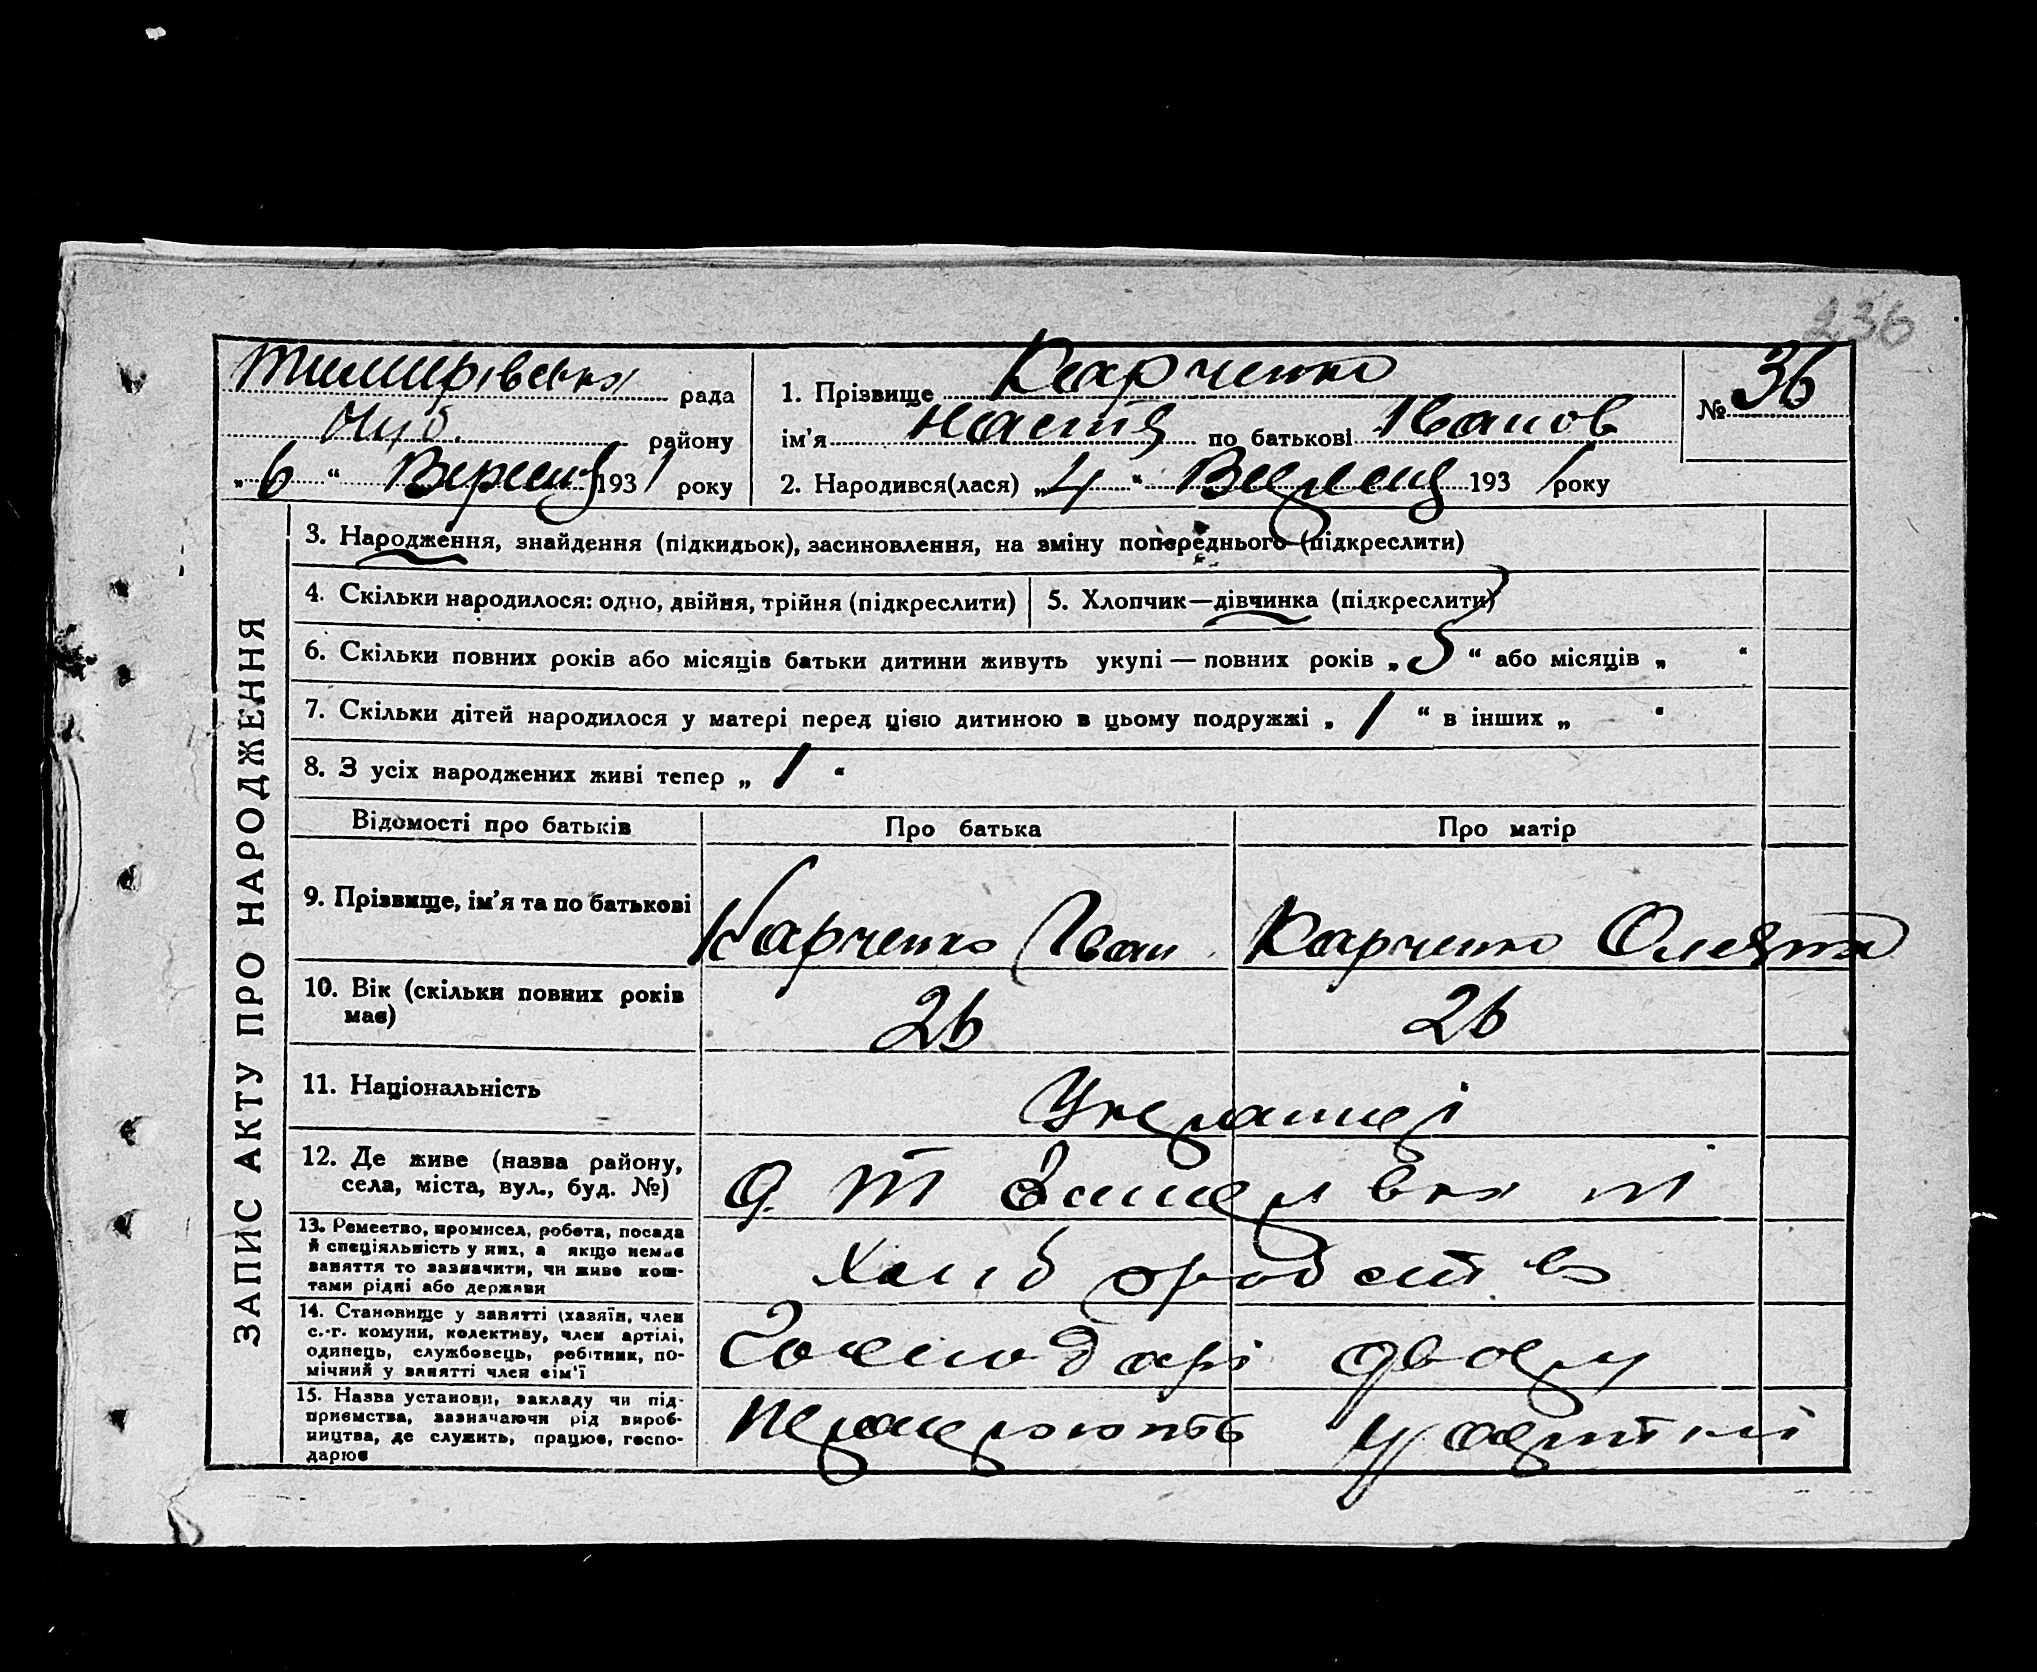 236
Тимирівська рада
Чуб. району
„6“ Вересня 1931 року
1. Прізвище Карченко
ім'я Настя по батькові Іванов
№ 36
2. Народився(лася) „4“ Вересня 1931 року
ЗАПИС АКТУ ПРО НАРОДЖЕННЯ
3. Народження, знайдення (підкидьок), засиновлення, на зміну попереднього (підкреслити)
4. Скільки народилося: одно, двійня, трійня (підкреслити)
5. Хлопчик—дівчинка (підкреслити)
6. Скільки повних років або місяців батьки дитини живуть укупі — повних років „5“ або місяців „ “
7. Скільки дітей народилося у матері перед цією дитиною в цьому подружжі „1“ в інших „ “
8. З усіх народжених живі тепер „1“
Відомості про батьків Про батька Про матір
9. Прізвище, ім'я та по батькові
Карченко Іван Карченко
10. Вік (скільки повних років
має)
26 26
11. Національність
Українці
12. Де живе (назва району,
села, міста, вул., буд. №)
13. Ремество, промисел, робота, посада
й спеціяльність у них, а якщо немає
заняття то зазначити, чи живе кош-
тами рідні або держави
Хліборобство
14. Становище у занятті (хазяїн, член
с.-г. комуни, колективу, член артілі,
одинець, службовець, робітник, по-
мічний у занятті член сім'ї
Господарі двору
15. Назва установи, закладу чи під-
приємства, зазначаючи рід вироб-
ництва, де служить, працює, госпо-
дарює
працюють у артілі